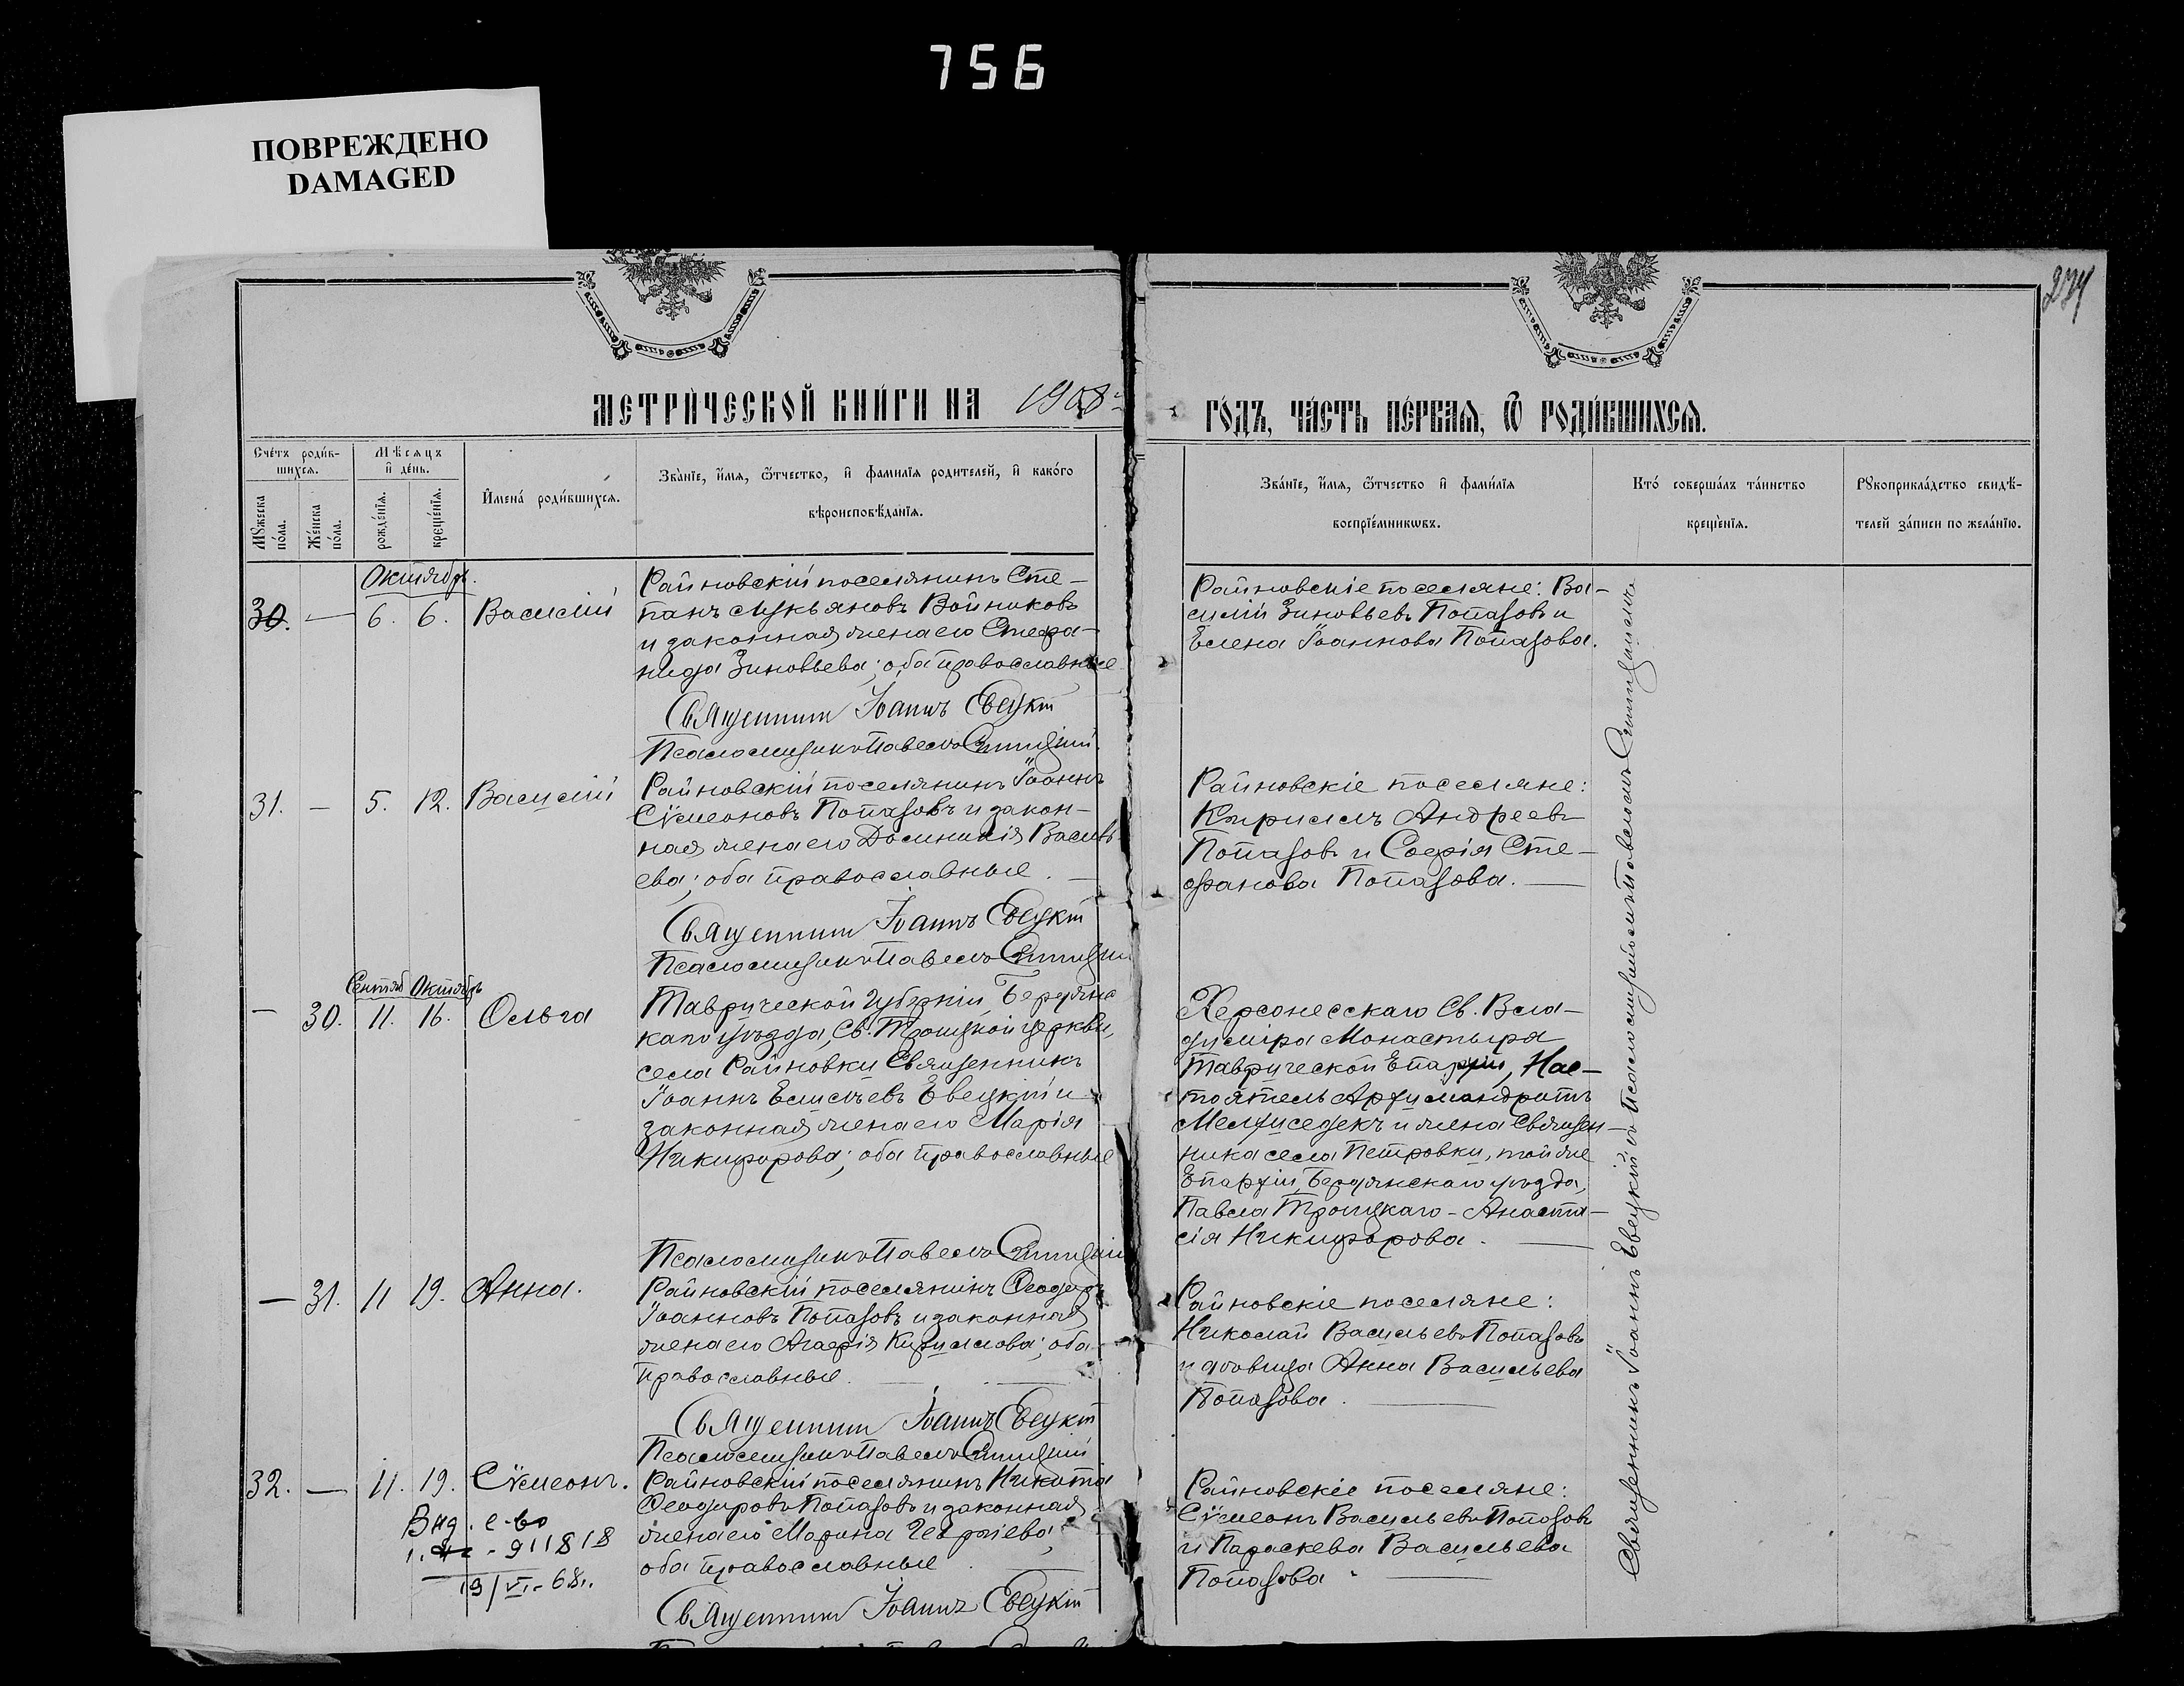 756
ПОВРЕЖДЕНО
DAMAGED
234
МЕТРИЧЕСКОЙ КНИГИ НА 1908
ГОДЪ, ЧАСТЬ ПЕРВАЯ, Ѿ РОДИВШИХСЯ.
Счетъ родив-
шихся.
Мужеска пола.
Женска пола.
Мѣсяцъ
и день.
рожденія.
крещенія.
Имена родившихся.
Званіе, имя, ѿтчество, и фамилія родителей, и какого
вѣроисповѣданія.
Званіе, имя, ѿтчество и фамилія
воспріемниковъ.
Кто совершалъ таинство
крещенія.
Рукоприкладство свидѣ-
телей записи по желанію.
Октябрь.
30. — 6. 6. Василій
Райновскій поселянинъ Сте-
панъ Лукьяновъ Войниковъ
и законная жена его Стефа-
нида Зиновьева; оба православные
Священникъ Іоаннъ Евецкій
Псаломщикъ Павелъ
Райновскіе поселяне: Ва-
силій Зиновьевъ Попазовъ и
Елена Іоаннова Попазова.
31. — 5. 12. Василій
Райновскій поселянинъ Іоаннъ
Сѵмеоновъ Попазовъ и закон-
ная жена его Домникія Василь-
ева; оба православные. —
Священникъ Іоаннъ Евецкій
Псаломщикъ Павелъ
Райновскіе поселяне:
Кириллъ Андреевъ
Попазовъ и Софія Сте-
фанова Попазова. —
Сентяб Октябрь
— 30. 11. 16. Ольга
Таврической Губерніи, Бердянс
каго уѣзда, Св. Троицкой церкви,
села Райновки Священникъ
Іоаннъ Елисѣевъ Евецкій и
законная жена его Марія
Никифорова; оба православные
Псаломщикъ Павелъ
Херсонесскаго Св. Вла-
диміра Монастыря
Таврической Епархіи, Нас-
тоятель Архимандритъ
Мелхиседекъ и жена Священ-
ника села Петровки, той же
Епархіи, Бердянскаго уѣзда,
Павла Троицкаго - Анаста-
сія Никифорова. —
— 31. 11 19. Анна.
Райновскій поселянинъ Ѳеодоръ
Іоанновъ Попазовъ и законная
жена его Агафія Кириллова; оба
православные. —
Священникъ Іоаннъ Евецкій
Псаломщикъ Павелъ
Райновскіе поселяне:
Николай Васильевъ Попазовъ
и дѣвица Анна Васильева
Попазова. —
32. — 11. 19. Сѵмеонъ.
Выд. с-во
911818
19/VI-68г.
Райновскій поселянинъ Никита
Ѳеодоровъ Попазовъ и законная
жена его Марина Георгіева;
оба православные. —
Священникъ Іоаннъ Евецкій
Райновскіе поселяне:
Сѵмеонъ Васильевъ Попазовъ
и Параскева Васильева
Попазова. —
Священникъ Іоаннъ Евецкій съ Псаломщикомъ Павломъ